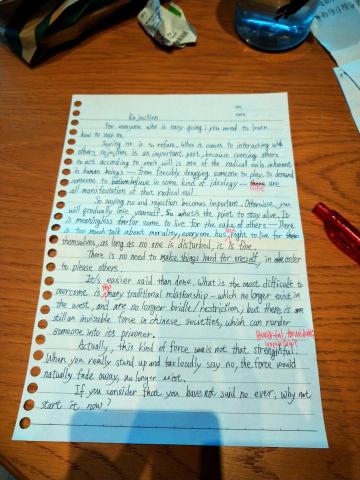 NO.
DATE
Rejection
For everyone who is easy going, you need to learn
how to say no.
Saying no is to refuse. When it comes to interacting with
others, rejection is an important part, because coercing others
to act according to one's will is one of the radical evils inherent
in human beings — from forcibly dragging someone to play, to demand
someone to believe in some kind of ideology — there are
all manifestation of that radical evil.
So saying no and rejection becomes important. Otherwise, you
will gradually lose yourself. So what's the point to stay alive. It
is meaningless for some to live for the sake of others — There
is too much talk about morality, everyone has right to live for
themselves, as long as no one is disturbed, is is fine.
There is no need to make things hard for oneself, in order
to please others.
It's easier said than done. What is the most difficult to
overcome is many traditional relationship — which no longer exist in
the west, and are no longer bridle/restriction; but there is
still an invisible force in chinese societies, which can render
someone into its prisoner.
Actually, this kind of force is not that strengthful.
When you really stand up and say no, the force would
natually fade away, no longer exist.
If you consider that you have not said no ever, why not
start it now?